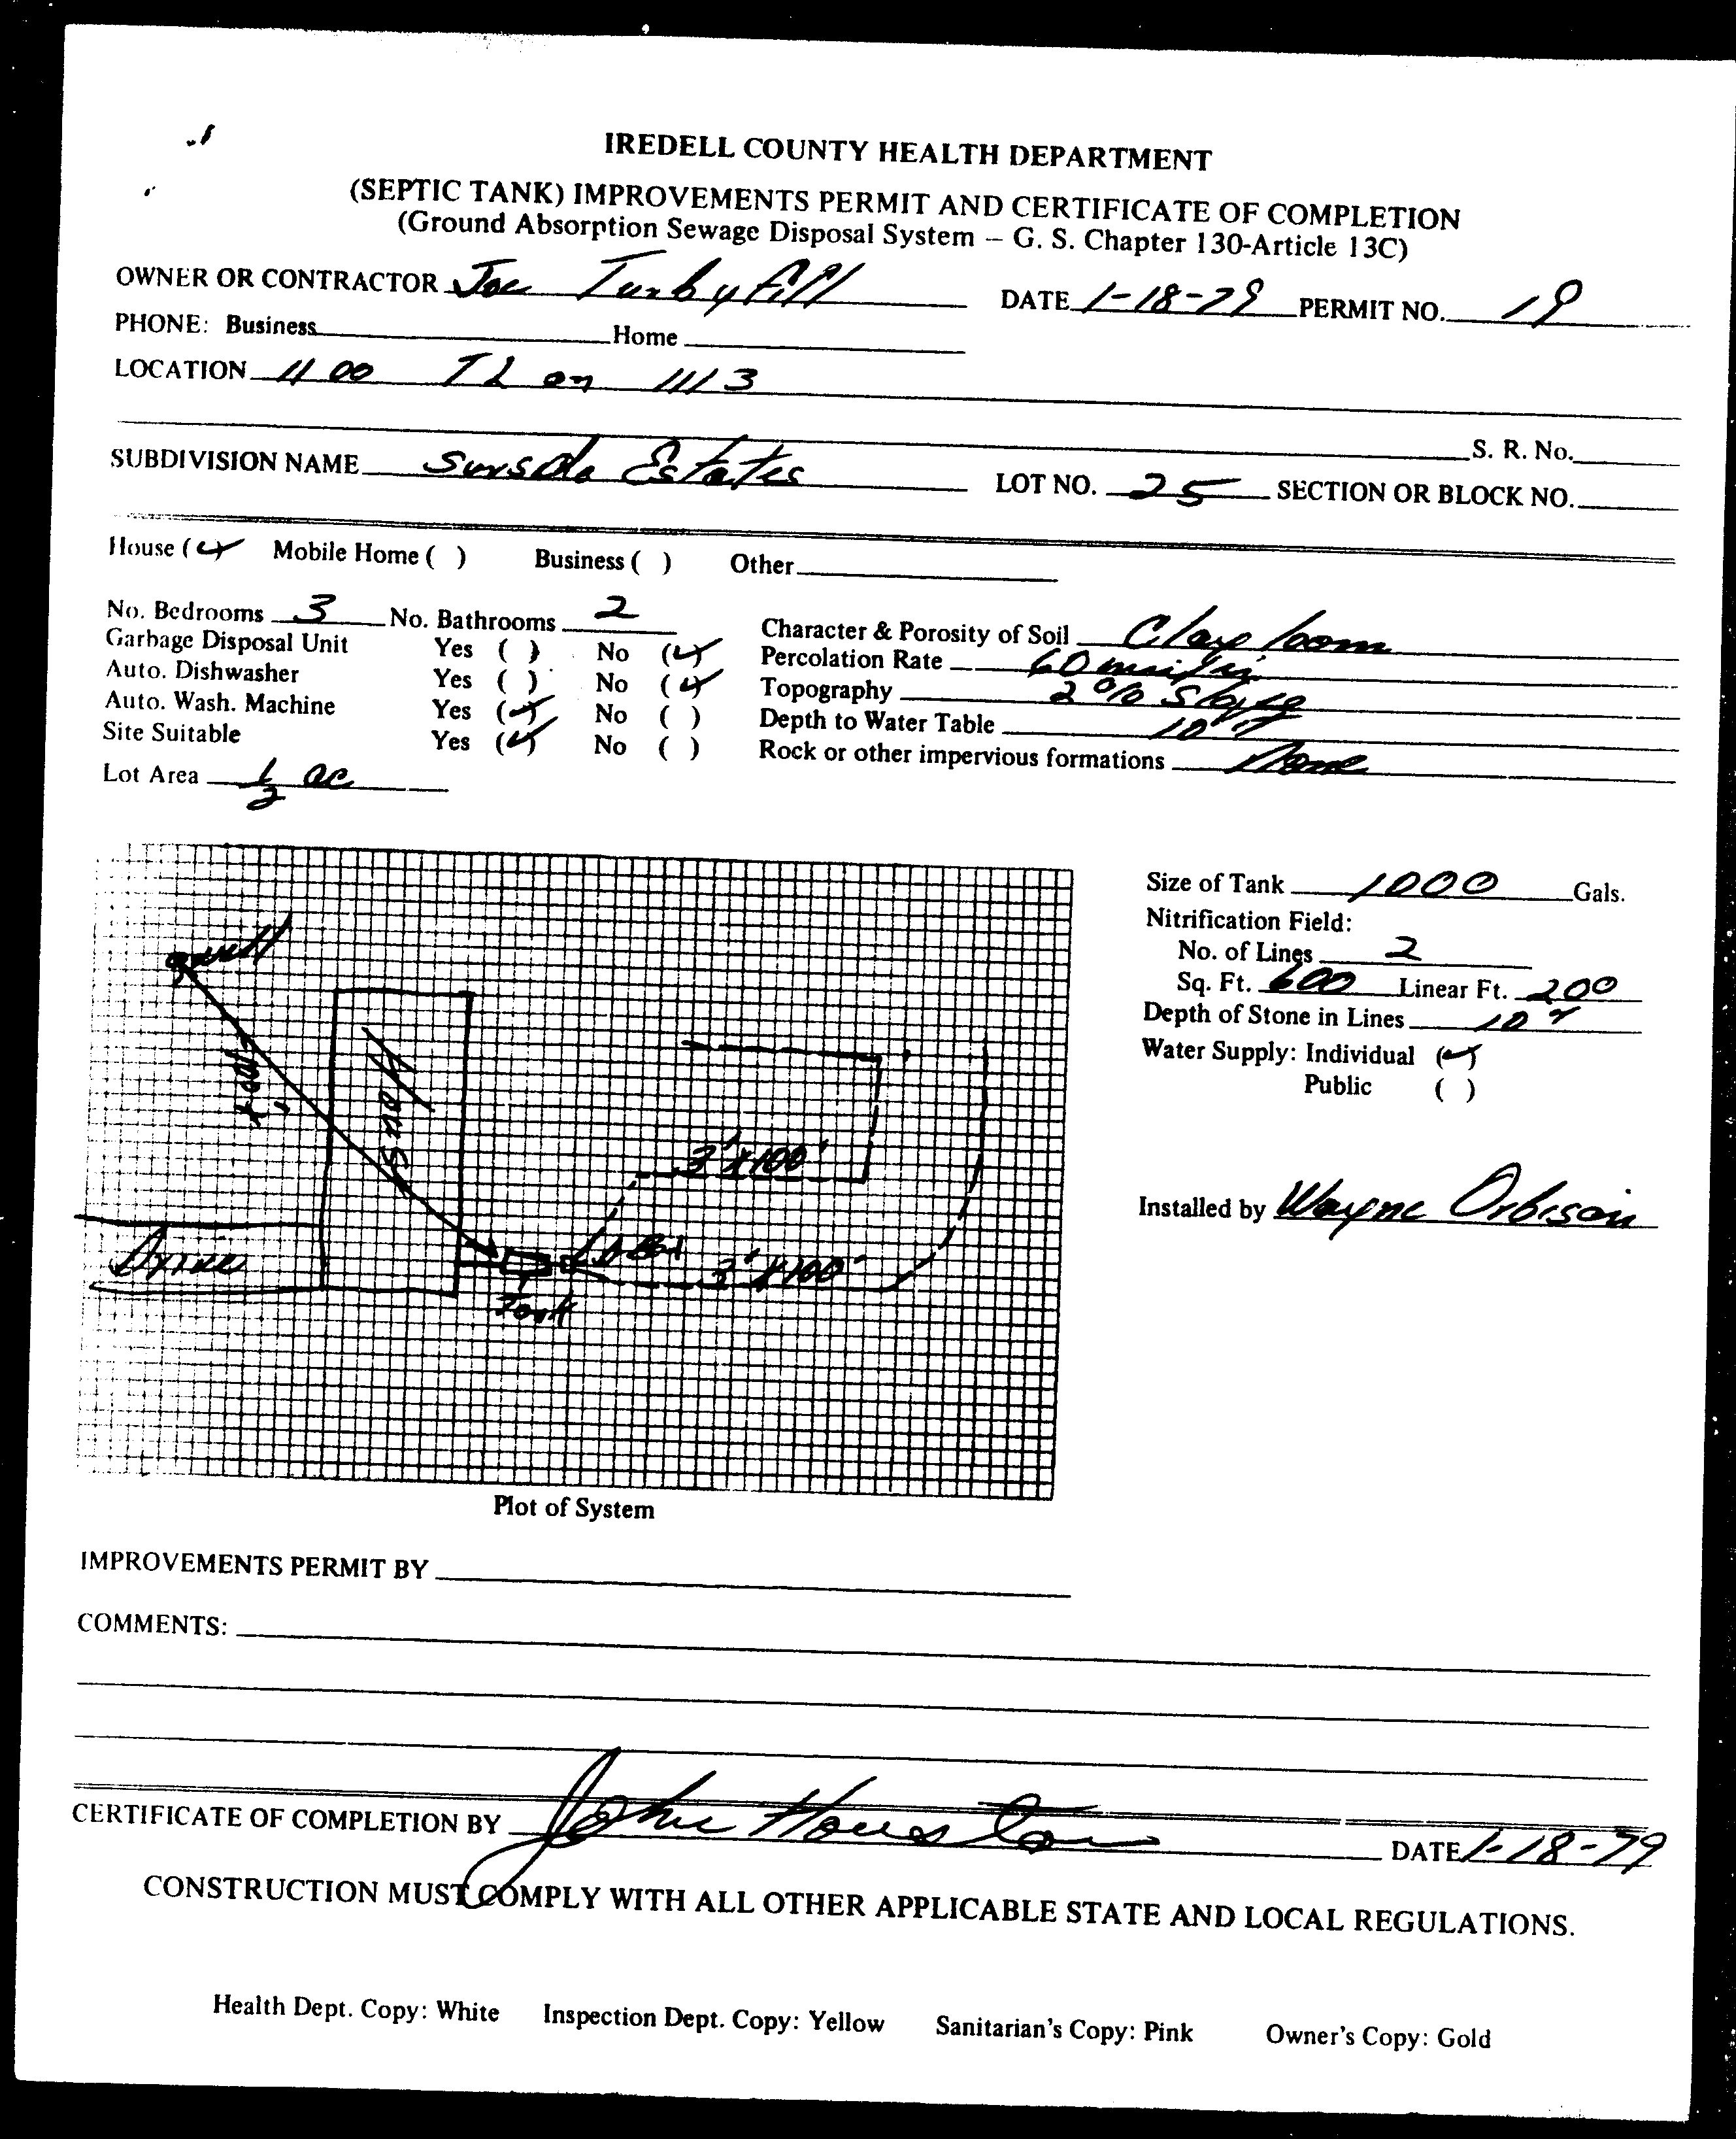 IREDELL COUNTY HEALTH DEPARTMENT
(SEPTIC TANK) IMPROVEMENTS PERMIT AND CERTIFICATE OF COMPLETION
(Ground Absorption Sewage Disposal System – G. S. Chapter 130-Article 13C)
OWNER OR CONTRACTOR Joe Turbyfill DATE 1-18-79 PERMIT NO. 19
PHONE: Business Home
LOCATION 1100 TL on 1113
S. R. No.
SUBDIVISION NAME Estates LOT NO. 25 SECTION OR BLOCK NO.
House (✓) Mobile Home ( ) Business ( ) Other
No. Bedrooms 3 No. Bathrooms 2
Character & Porosity of Soil Clay loom
Garbage Disposal Unit Yes ( ) No (✓)
Percolation Rate 60 min/in
Auto. Dishwasher Yes ( ) No (✓)
Topography 2% Slope
Auto. Wash. Machine Yes (✓) No ( )
Depth to Water Table 10
Site Suitable Yes (✓) No ( )
Rock or other impervious formations None
Lot Area 1/2 ac
Size of Tank 1000 Gals.
Nitrification Field:
No. of Lines 2
Sq. Ft. 600 Linear Ft. 200
Depth of Stone in Lines 10"
Water Supply: Individual (✓)
Public ( )
Installed by Wayne Orbison
well
House
3'x100'
Drive
D Box
3'x100'
Tank
Plot of System
IMPROVEMENTS PERMIT BY
COMMENTS:
CERTIFICATE OF COMPLETION BY John Houston DATE 1-18-79
CONSTRUCTION MUST COMPLY WITH ALL OTHER APPLICABLE STATE AND LOCAL REGULATIONS.
Health Dept. Copy: White Inspection Dept. Copy: Yellow Sanitarian's Copy: Pink Owner's Copy: Gold